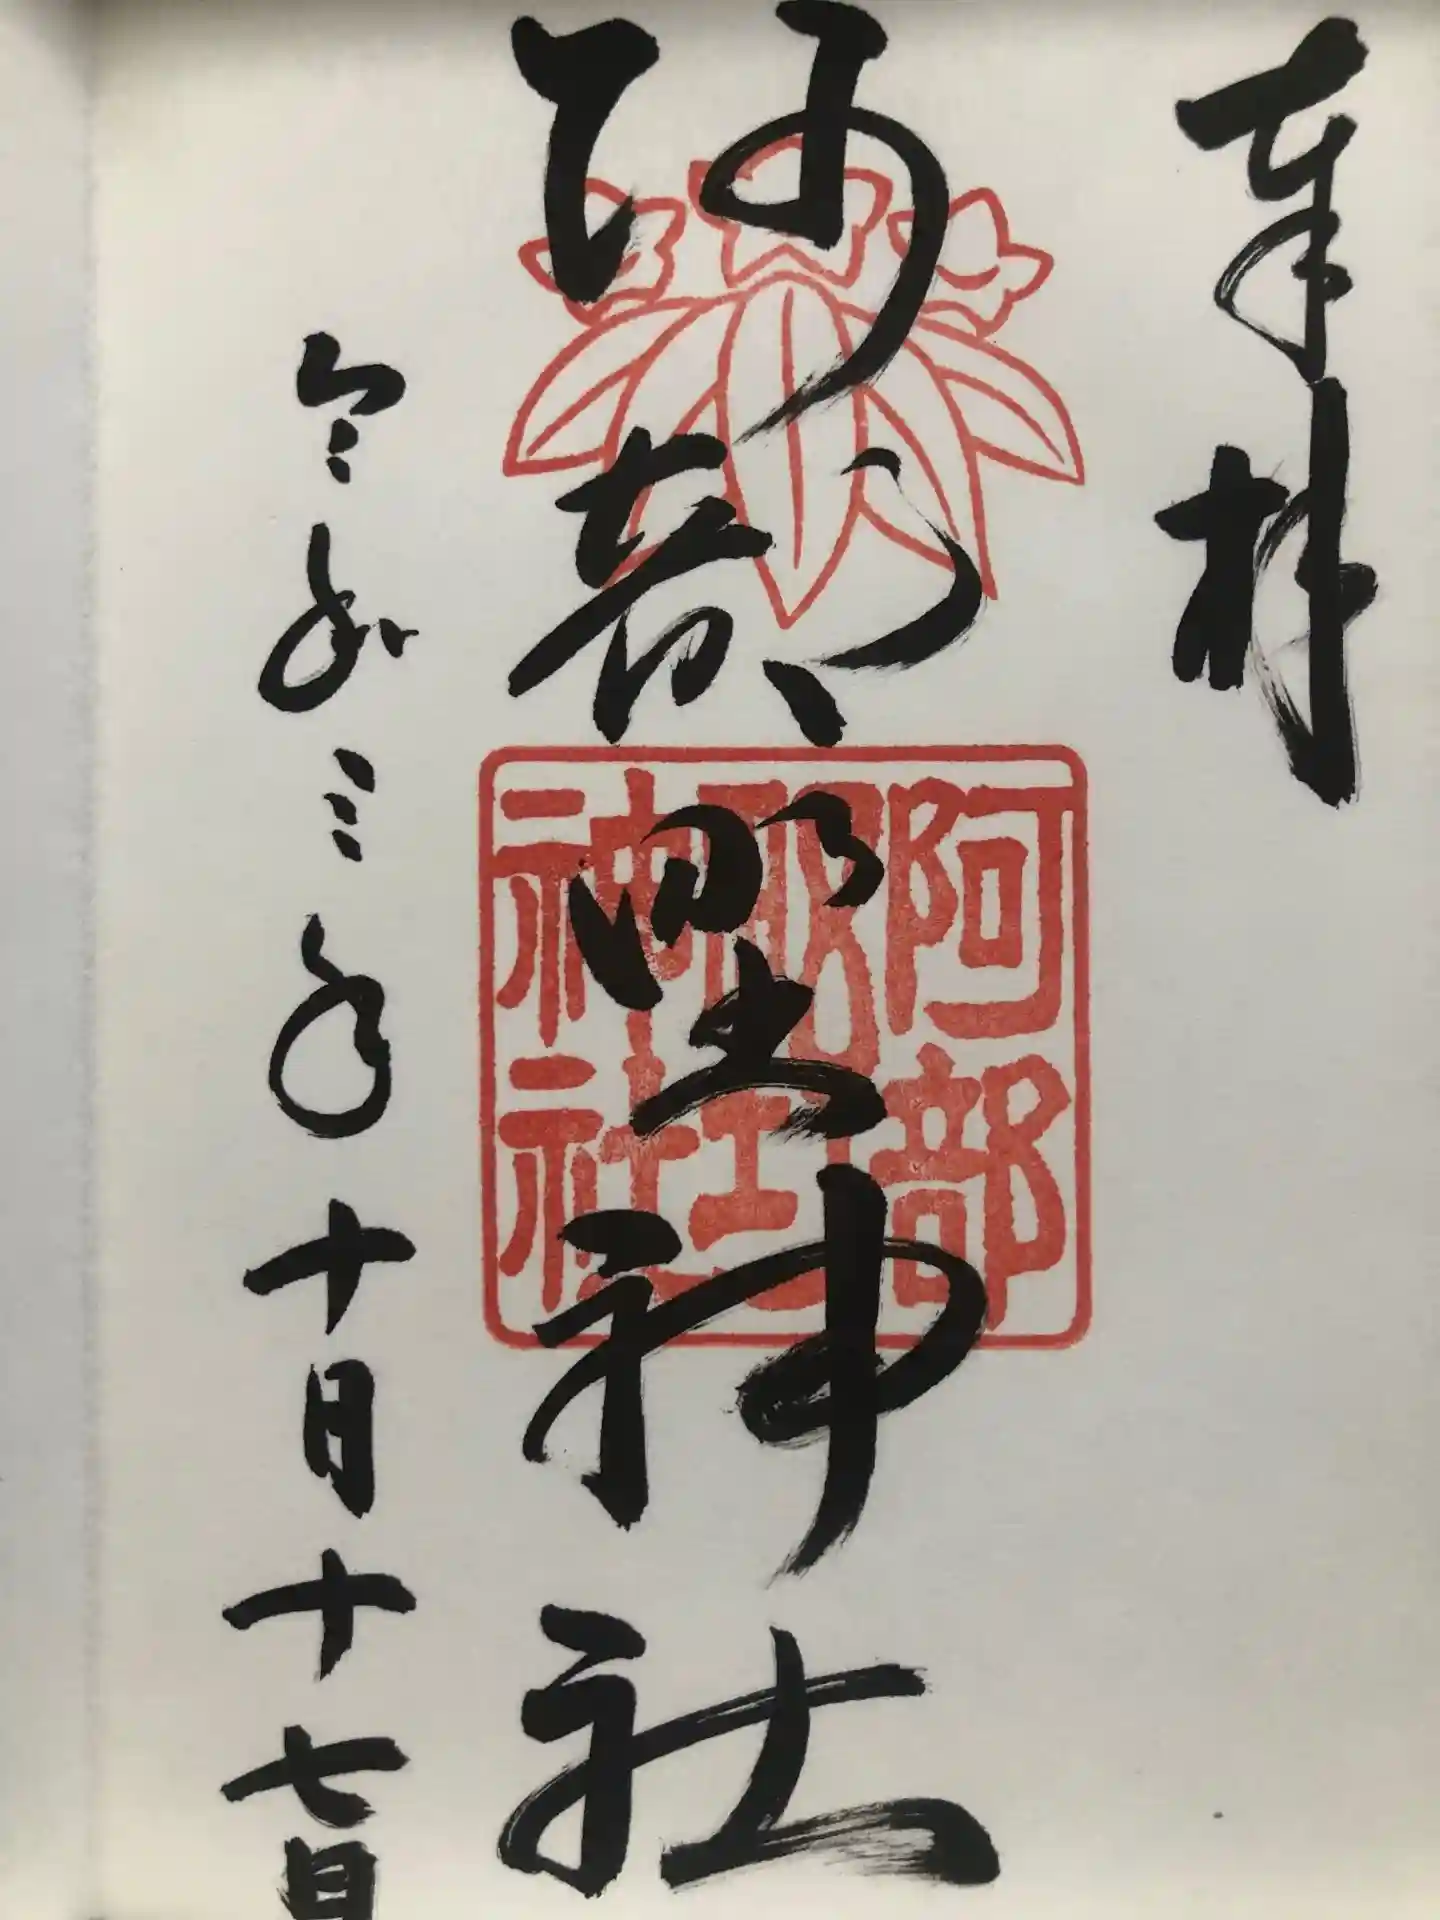 奉拝
阿部野神社
令和三年十月十七日
阿部
野
神社